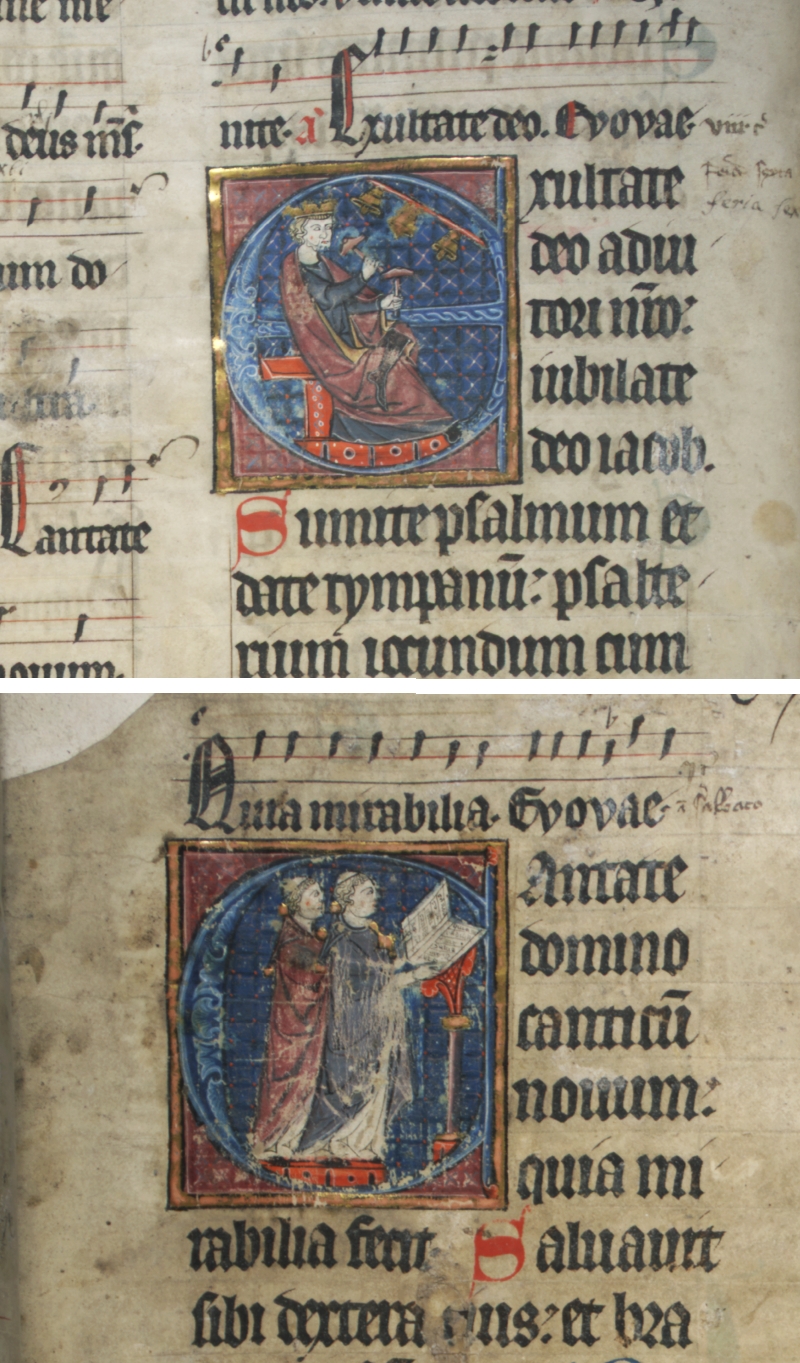 deus nr̄s.
um do
Cantate
nouum.
nite. a Exultate deo. Evovae
xultate
deo adiu
tori nr̄o:
iubilate
deo iacob.
Sumite psalmum et
date tympanū: psalte
rium iocundum cum
Quia mirabilia. Evovae
Antate
domino
canticū
nouum:
quia mi
rabilia fecit Saluauit
sibi dextera eius: et bra